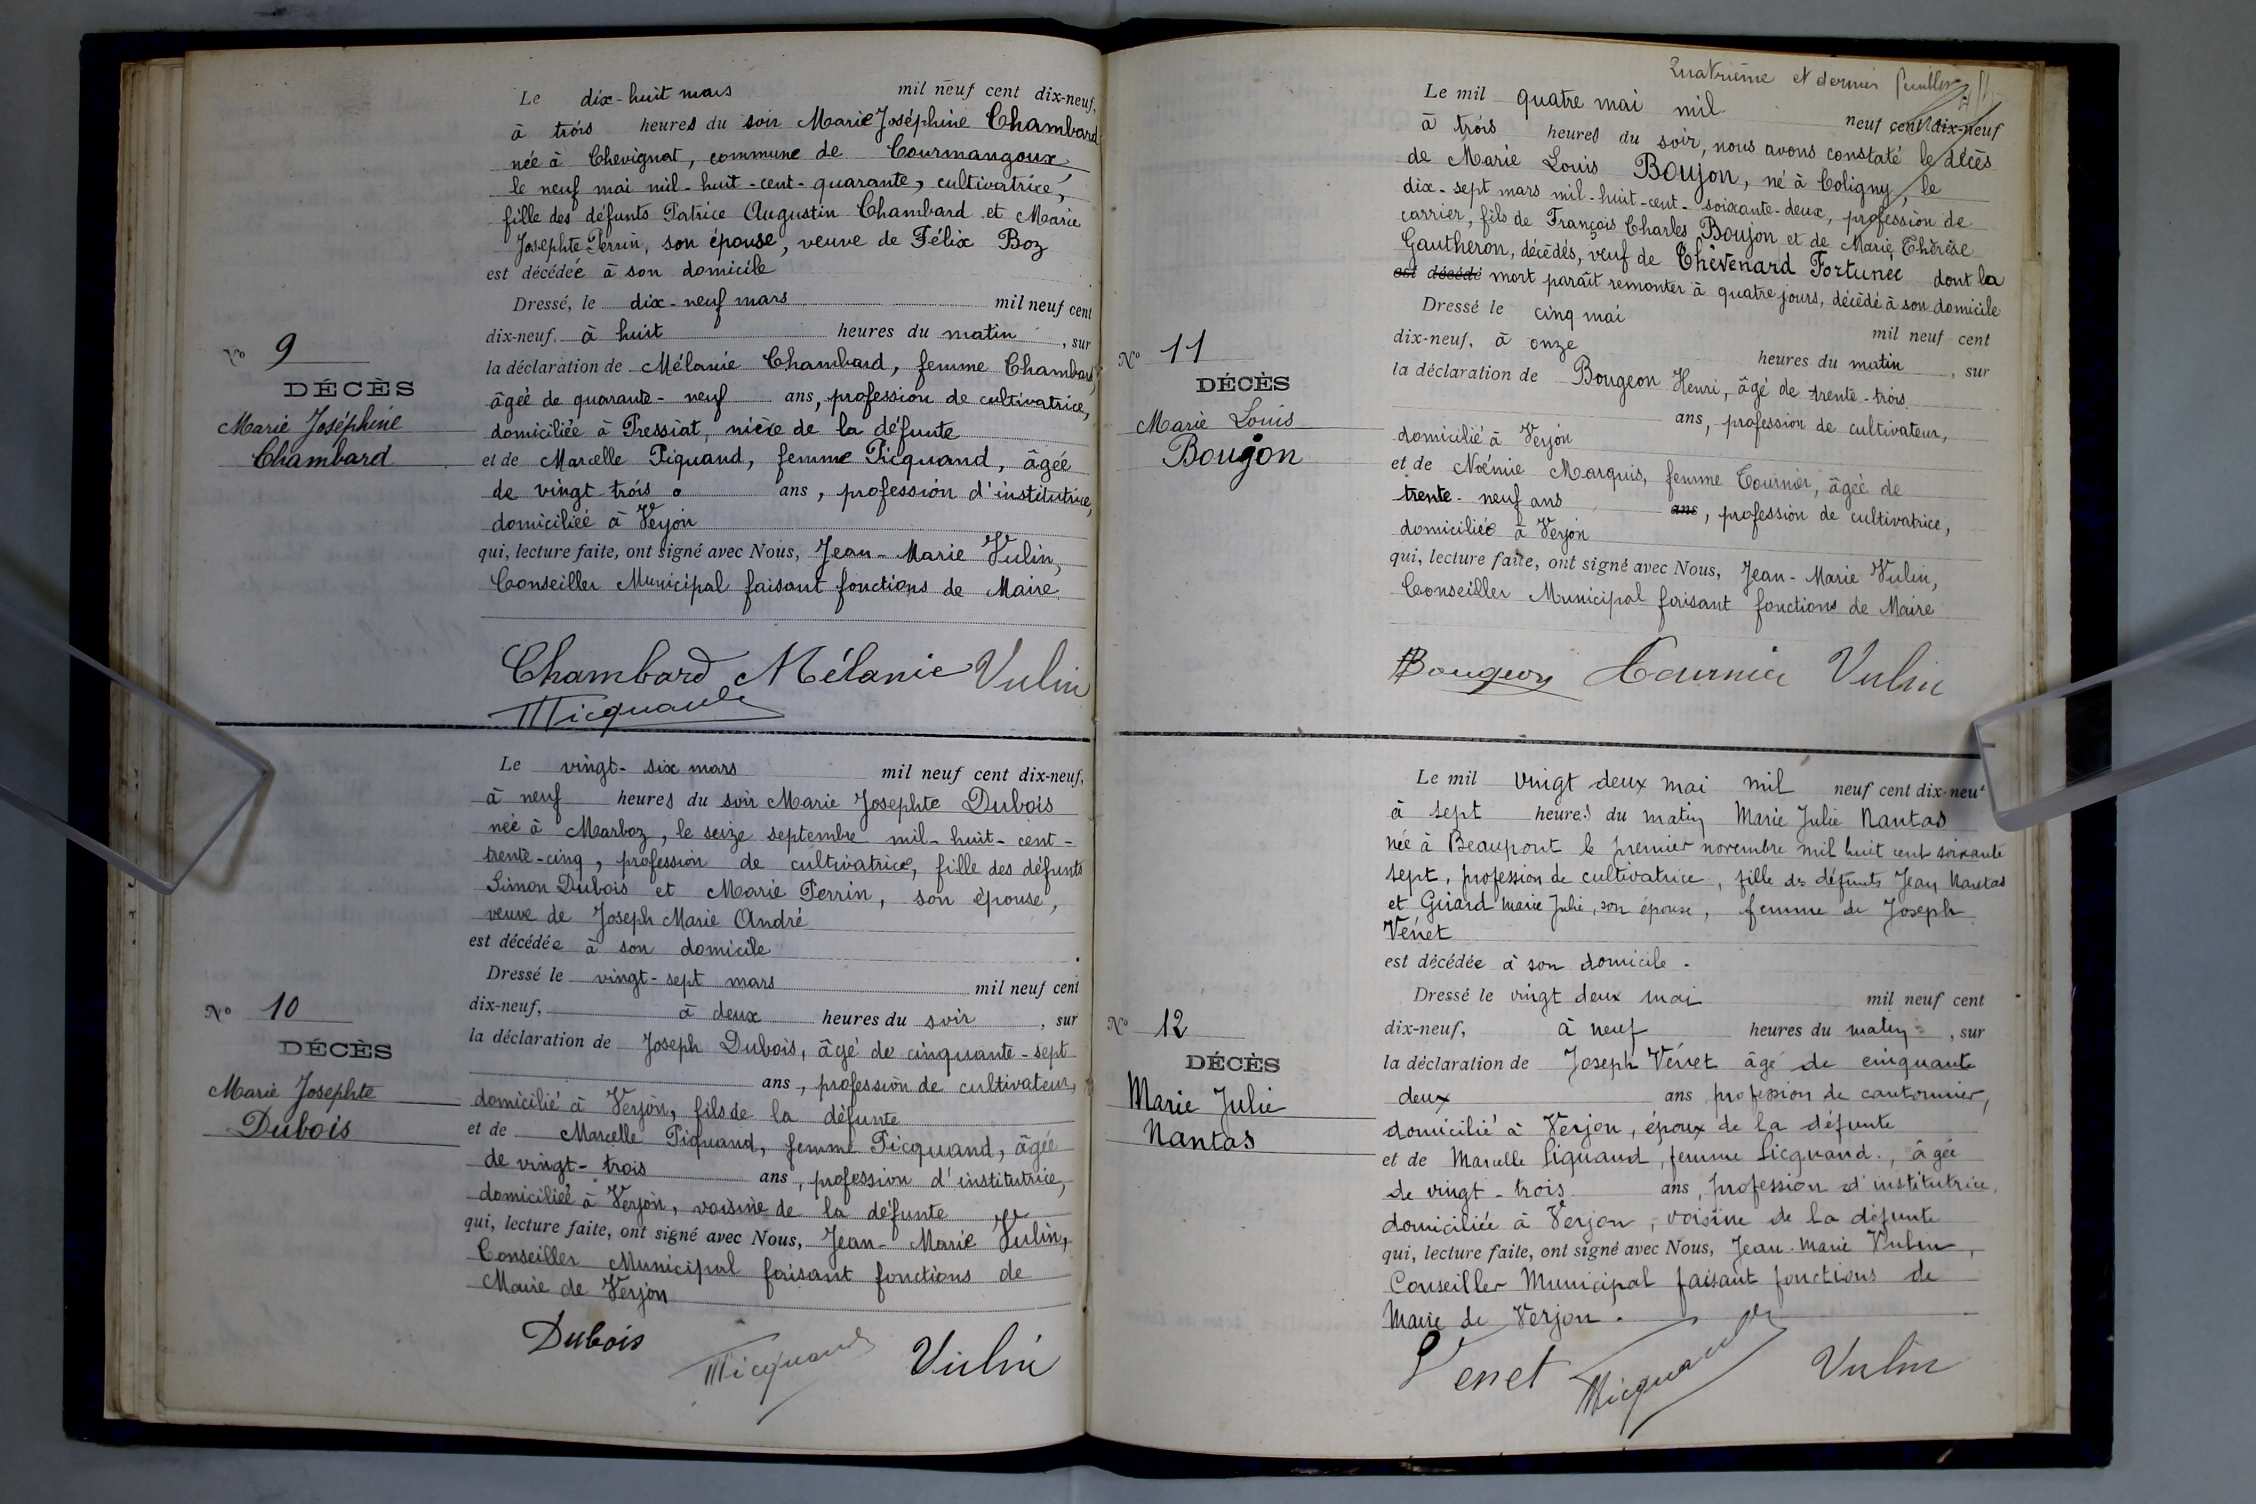 Le dix-huit mars mil neuf cent dix-neuf,
à trois heures du soir Marie Joséphine Chambard
née à Chevignat, commune de Courmangoux,
le neuf mai mil-huit-cent-quarante, cultivatrice,
fille des défunts Patrice Augustin Chambard et Marie
Josephte Perrin, son épouse, veuve de Félix Boz
est décédée à son domicile
Dressé, le dix-neuf mars mil neuf cent
dix-neuf. à huit heures du matin, sur
la déclaration de Mélanie Chambard, femme Chambard,
âgée de quarante-neuf ans, profession de cultivatrice,
domiciliée à Pressiat, nièce de la défunte
et de Marcelle Piquand, femme Picquand, âgée
de vingt-trois ans, profession d'institutrice,
domiciliée à Verjon
qui, lecture faite, ont signé avec Nous, Jean-Marie Vulin,
Conseiller Municipal faisant fonctions de Maire
Chambard Mélanie Vulin
MPicquand
No 9
DÉCÈS
Marie Joséphine
Chambard
Le vingt-six mars mil neuf cent dix-neuf,
à neuf heures du soir Marie Josephte Dubois
née à Marboz, le seize septembre mil-huit-cent-
trente-cinq, profession de cultivatrice, fille des défunts
Simon Dubois et Marie Perrin, son épouse,
veuve de Joseph Marie André
est décédée à son domicile.
Dressé le vingt-sept mars mil neuf cent
dix-neuf, à deux heures du soir, sur
la déclaration de Joseph Dubois, âgé de cinquante-sept
ans, profession de cultivateur,
domicilié à Verjon, fils de la défunte
et de Marcelle Piquand, femme Picquand, âgée
de vingt-trois ans, profession d'institutrice,
domiciliée à Verjon, voisine de la défunte
qui, lecture faite, ont signé avec Nous, Jean-Marie Vulin,
Conseiller Municipal faisant fonctions de
Maire de Verjon
Dubois MPicquand Vulin
No 10
DÉCÈS
Marie Josephte
Dubois
Quatrième et dernier feuillet
Le mil quatre mai mil neuf cent dix-neuf
à trois heures du soir, nous avons constaté le décès
de Marie Louis Boujon, né à Coligny, le
dix-sept mars mil-huit-cent-soixante-deux, profession de
carrier, fils de François Charles Boujon et de Marie Thérèse
Gautheron, décédés, veuf de Chêvenard Fortunée dont la
est décédé mort paraît remonter à quatre jours, décédé à son domicile
Dressé le cinq mai mil neuf cent
dix-neuf, à onze heures du matin, sur
la déclaration de Bougeon Henri, âgé de trente-trois
ans, profession de cultivateur,
domicilié à Verjon
et de Noémie Marquis, femme Tournier, âgée de
trente-neuf ans ans, profession de cultivatrice,
domiciliée à Verjon
qui, lecture faite, ont signé avec Nous, Jean-Marie Vulin,
Conseiller Municipal faisant fonctions de Maire
HBougeon Tournier Vulin
No 11
DÉCÈS
Marie Louis
Boujon
Le mil vingt deux mai mil neuf cent dix-neuf
à sept heures du matin Marie Julie Nantas
née à Beaupont le premier novembre mil huit cent soixante
sept, profession de cultivatrice, fille des défunts Jean Nantas
et Girard Marie Julie, son épouse, femme de Joseph
Vénet
est décédée à son domicile.
Dressé le vingt deux mai mil neuf cent
dix-neuf, à neuf heures du matin, sur
la déclaration de Joseph Vénet âgé de cinquante
deux ans profession de cantonnier,
domicilié à Verjon, époux de la défunte
et de Marcelle Piquand, femme Picquand., âgée
de vingt-trois ans, profession d'institutrice,
domiciliée à Verjon, voisine de la défunte
qui, lecture faite, ont signé avec Nous, Jean-Marie Vulin,
Conseiller Municipal faisant fonctions de
Maire de Verjon.
Venet MPicquand Vulin
No 12
DÉCÈS
Marie Julie
Nantas